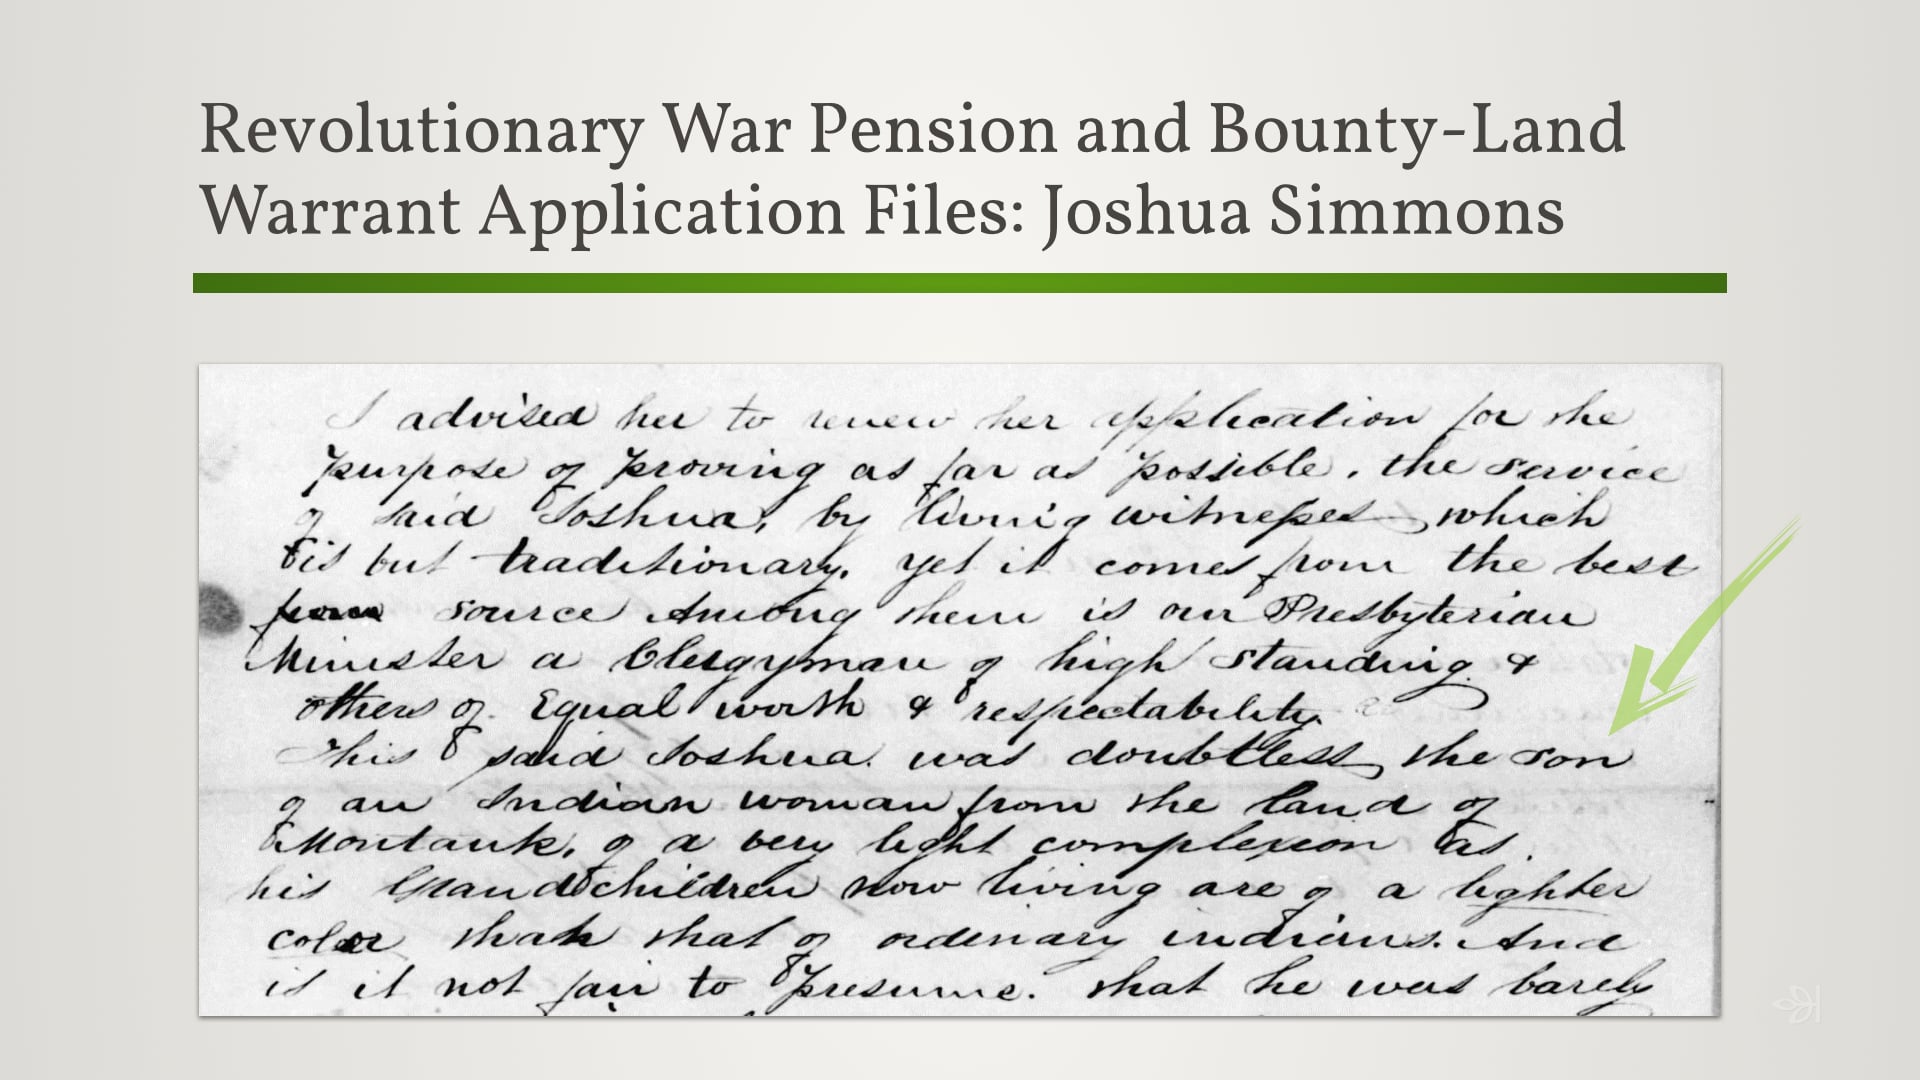 Revolutionary War Pension and Bounty-Land
Warrant Application Files: Joshua Simmons
I advised her to renew her application for the
purpose of proving as far as possible, the service
of said Joshua, by living witnesses which
tis but traditionary, yet it comes from the best
from source Among them is our Presbyterian
Minister a Clergyman of high standing &
others of Equal worth & respectability.
This said Joshua was doubtless the son
of an Indian woman from the land of
Montauk, of a very light complexion as
his Grandchildren now living are of a lighter
color than that of ordinary indians. And
is it not fair to presume. that he was barely